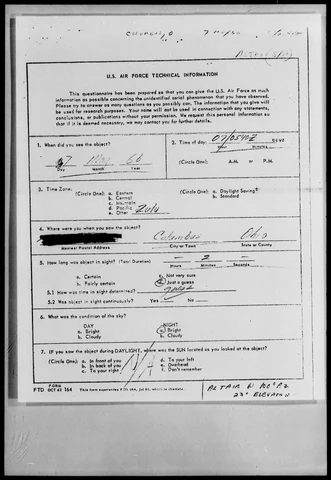 7 May 66
U.S. AIR FORCE TECHNICAL INFORMATION
This questionnaire has been prepared so that you can give the U.S. Air Force as much
information as possible concerning the unidentified aerial phenomenon that you have observed.
Please try to answer as many questions as you possibly can. The information that you give will
be used for research purposes. Your name will not be used in connection with any statements,
conclusions, or publications without your permission. We request this personal information so
that if it is deemed necessary, we may contact you for further details.
1. When did you see the object?
07 May 66
Day Month Year
2. Time of day: 07/0540Z
Hour Minutes
(Circle One): A.M. or P.M.
3. Time Zone:
(Circle One): a. Eastern
b. Central
c. Mountain
d. Pacific
e. Other Zulu
(Circle One): a. Daylight Saving
b. Standard
4. Where were you when you saw the object?
Columbus Ohio
Nearest Postal Address City or Town State or County
5. How long was object in sight? (Total Duration) - 2 -
Hours Minutes Seconds
a. Certain c. Not very sure
b. Fairly certain d. Just a guess
5.1 How was time in sight determined?
5.2 Was object in sight continuously? Yes ✓ No
6. What was the condition of the sky?
DAY NIGHT
a. Bright a. Bright
b. Cloudy b. Cloudy
7. IF you saw the object during DAYLIGHT, where was the SUN located as you looked at the object?
(Circle One): a. In front of you d. To your left
b. In back of you e. Overhead
c. To your right f. Don't remember
N/A
FORM
FTD OCT 62 164 This form supersedes FTD 164, Jul 61, which is obsolete.
ALTAIR @ 100° AZ
23° ELEVATION